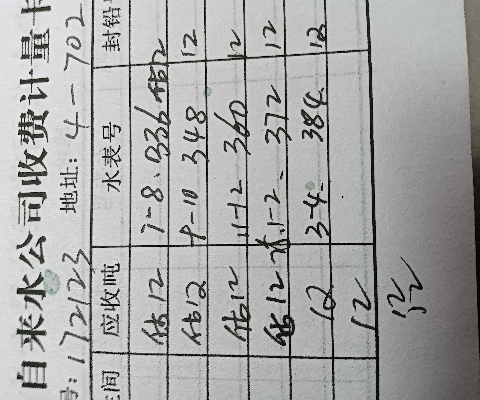 自来水公司收费计量卡
号:172123 地址:4-702
间 应收吨 水表号 封铅
估12 7-8. 336 估12
估12 9-10 348 12
估12 11-12 360 12
估12 1-2. 372 12
12 3-4. 384 12
12
12